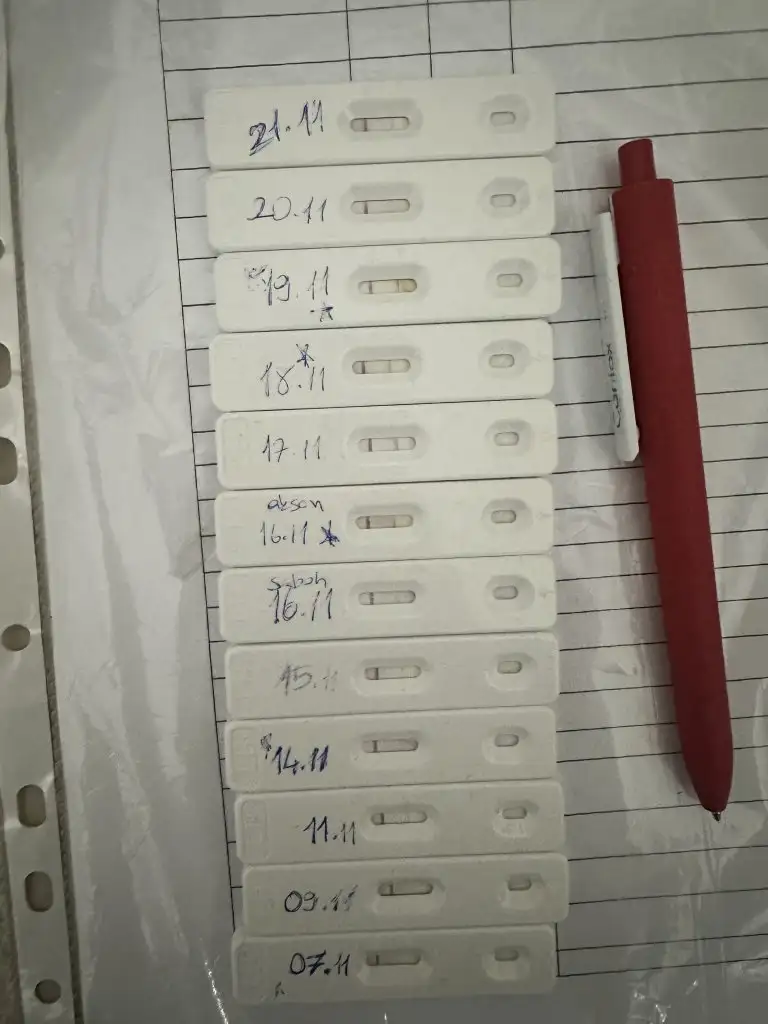 21.11
20.11
19.11
18.11
17.11
akşam
16.11
sabah
16.11
15.11
14.11
11.11
09.11
07.11